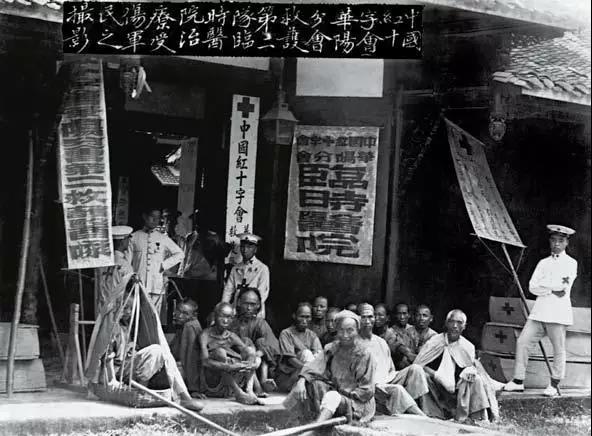 中國紅十字會華陽分會救護第二隊臨時醫院治療受傷軍民之撮影
分會第二救護隊
中國紅十字會
中國紅十字會
華陽分會
臨時醫院